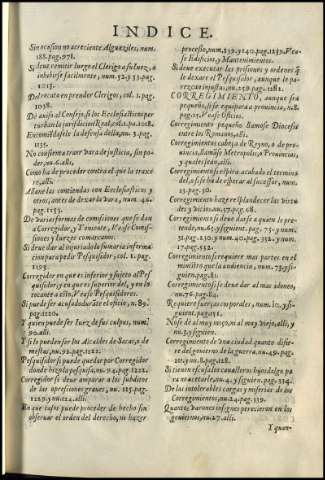 INDICE.
Sin ocasion no acreciente Alguaziles, num.
188. pag. 978.
Si deue remitir luego el Clerigo a su Iuez, o
inhibirse facilmente, num. 52. y 53. pag.
1015.
Del recato en prender Clerigos, col. 1. pag.
1058.
De auiso al Consejo, si los Ecclesiasticos per
turban la jurisdicion Real,
Encomiendasele la defensa della, nu. 3. pag.
1135.
No consienta traer vara de justicia, sin po-
der, nu. 6. alli.
Como ha de proceder contra el que la traxe
re, alli.
Allane las contiendas con Ecclesiasticos y
otros, antes de dexar la vara, num. 46.
pag. 1153.
De varias suertes de comissiones que se dan
a Corregidor, y Teniente, Vease Comis-
siones y luego comarcano.
Si se deue dar al inquirido la sumaria informa
cion para q̃ pesquisidor, col. 1. pag.
1193.
Corregidor en que es inferior y sujeto al Pes
quisidor, y en que es superior del, y en lo
tocante a esto, Vease Pesquisidores.
Si puede ser acusado durãte el oficio, n. 89.
pag. 1220.
Y quien puede ser Iuez de sus culpas, num.
90. alli.
Y si lo pueden ser los Alcaldes de Sacas, o de
mestas, nu. 92. pag. 1222.
Pesquisidor si puede quedar por Corregidor
donde hizo la pesquisa, nu. 94. pag. 1222.
Corregidor si deue amparar a los subditos
de las opressiones graues, nu. 123. pag.
1229. y nu. 124. alli.
En que casos puede proceder de hecho sin
obseruar el orden del derecho, ni hazer
processo, num. 139. 140. pag. 1239. Vea-
se Edificios, y Mantenimientos.
Si deue executar las prisiones y ordenes q̃
le dexare el Pesquisidor, aunque le pa-
rezcan injustas, nu. 259. pag. 1281.
CORREGIMIENTO, aunque sea
pequeño,
Corregimiento pequeño, llamose Diocesis
entre los Romanos, alli.
Corregimientos cabeça de Reyno, o de pro-
uincia, llamose Metropolis, o Prouincias,
y quales sean, alli.
Corregimiento si espira acabado el termino
del, o si se ha de esperar al sucessor, num.
25. pag. 30.
Corregimiento haze resplandecer las virtudes
y vicios, nu. 57. pag. 68.
Corregimiento si se deue dar a quien le preten-
de,
Corregimiento si requiere mas partes en el
ministro que la audiencia, num. 73. y si-
guien. pag. 81.
Corregimiento si se deue dar al mas idoneo,
nu. 76. pag. 84.
Requiere fuerças corporales, num. 10. y si-
guient. pag. 131.
No se de al muy moço, ni al muy viejo, alli, y
nu. 3. y siguien.
Corregimiento de vna ciudad quanto difie-
re del gouierno de la guerra, nu. 49. pag.
105. y nu. 8. pag. 128.
Si tienen escusa los caualleros hijos dalgo pa
ra no aceptarle, nu. 4. y siguien. pag. 334.
De las intolerables cargas y miserias de los
Corregimientos, nu. 24. pag. 339.
Quantos varones insignes perecieron en los
gouiernos, nu. 27. alli.
Y quan-